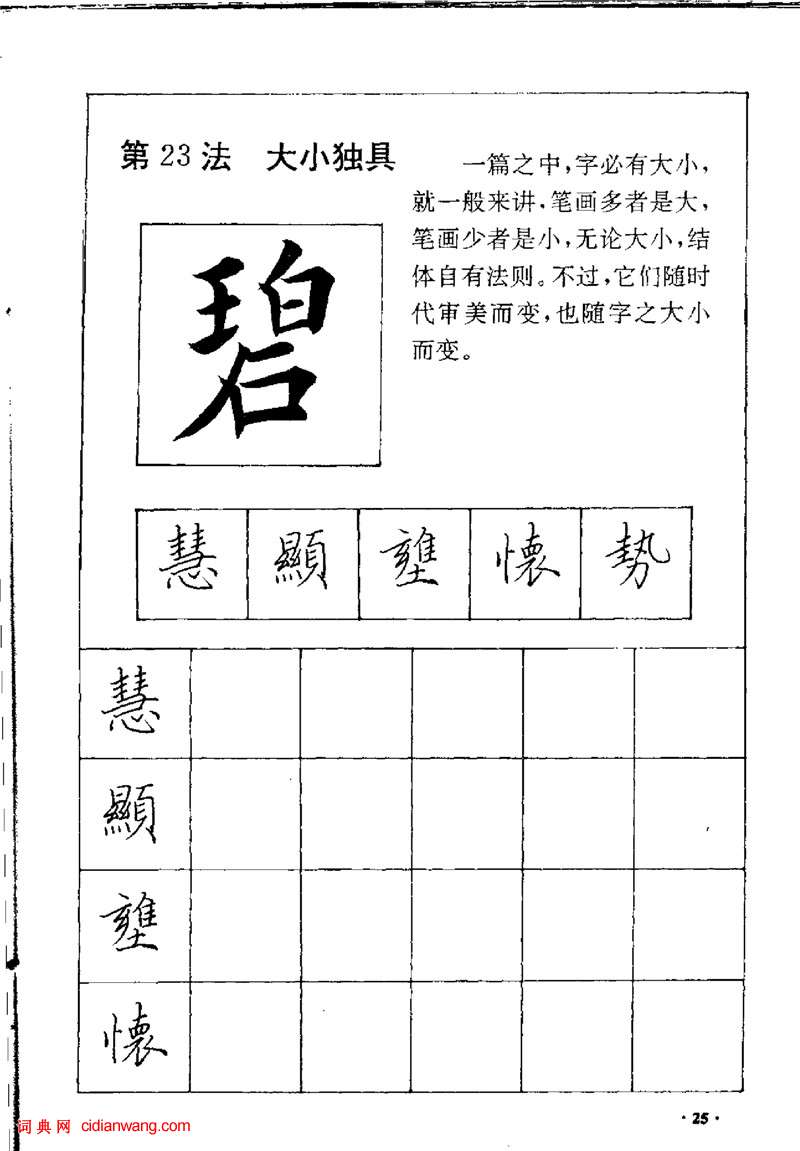 第23法 大小独具
一篇之中,字必有大小,
就一般来讲,笔画多者是大,
笔画少者是小,无论大小,结
体自有法则。不过,它们随时
代审美而变,也随字之大小
而变。
碧
慧 顯 壅 懷 勢
慧
顯
壅
懷
·25·
词典网 cidianwang.com